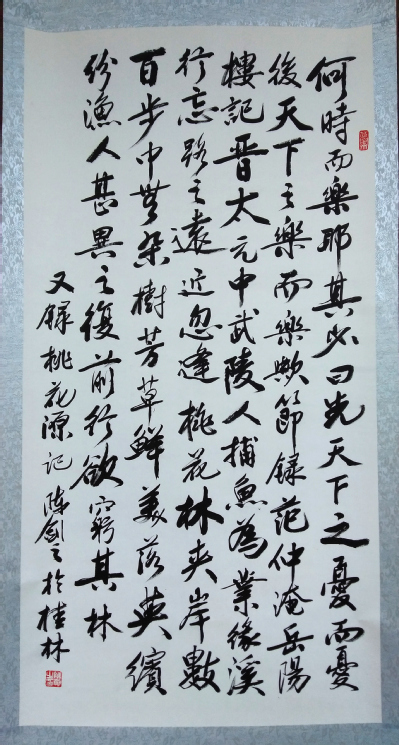 何時而樂耶其必曰先天下之憂而憂
後天下之樂而樂歟節録范仲淹岳陽
樓記晋太元中武陵人捕魚為業緣溪
行忘路之遠近忽逢桃花林夾岸數
百步中無杂樹芳草鮮美落英繽
紛漁人甚異之復前行欲窮其林
又録桃花源記陈剑之於桂林